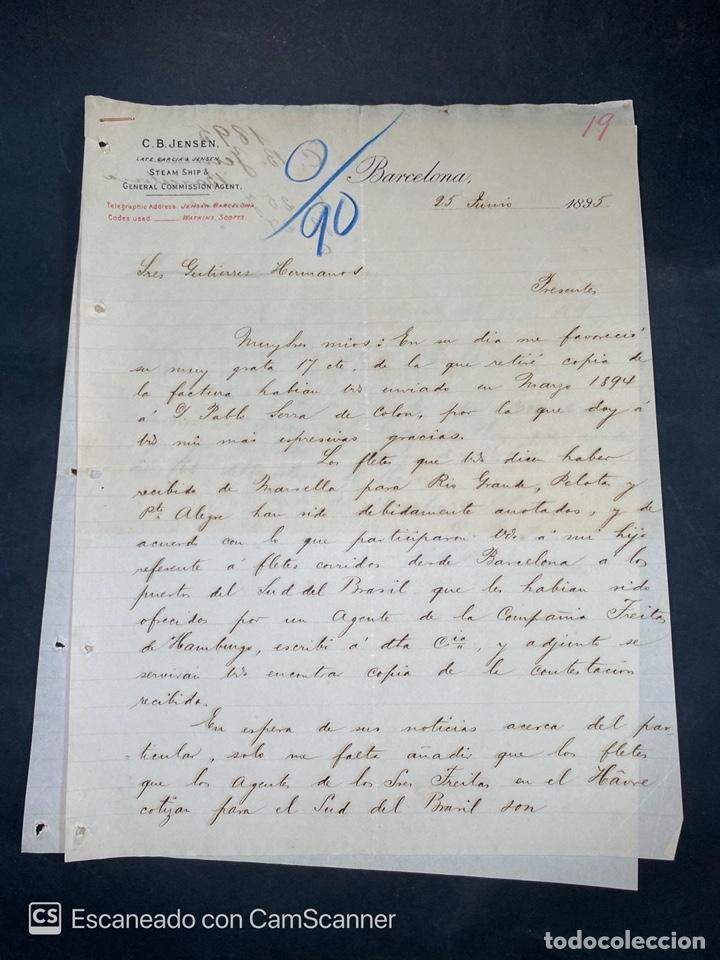 C. B. JENSEN,
LATE GARCIA & JENSEN,
STEAM SHIP &
GENERAL COMMISSION AGENT,
Telegraphic Address JENSEN-BARCELONA
Codes used WATKINS, SCOTTS.
19
0/90
Barcelona,
25 Junio 1895
Sres Gutierres Hermanos
Presentes
Muy Sres mios: En su dia me favoreció
su muy grata 17 cte, de la que retiré copia de
la factura habian Vds enviado en Marzo 1894
á D. Pablo Serra de Colon, por la que doy á
Vds mis más espresivas gracias.
Los fletes que Vds dicen haber
recibido de Marsella para Rio Grande, Pelotas y
Pto. Alegre han sido debidamente anotados, y de
acuerdo con lo que participaron Vds á mi hijo
referente á fletes corridos desde Barcelona a los
puertos del Sud del Brasil que les habian sido
ofrecidos por un Agente de la Compañia Freitas
de Hamburgo, escribí á dha Cia, y adjunto se
serviran Vds encontrar copia de la contestacion
recibida.
En espera de sus noticias acerca del par-
ticular, solo me falta añadir que los fletes
que los Agentes de los Sres Freitas en el Hâvre
cotizan para el Sud del Brasil son
CS Escaneado con CamScanner
todocoleccion